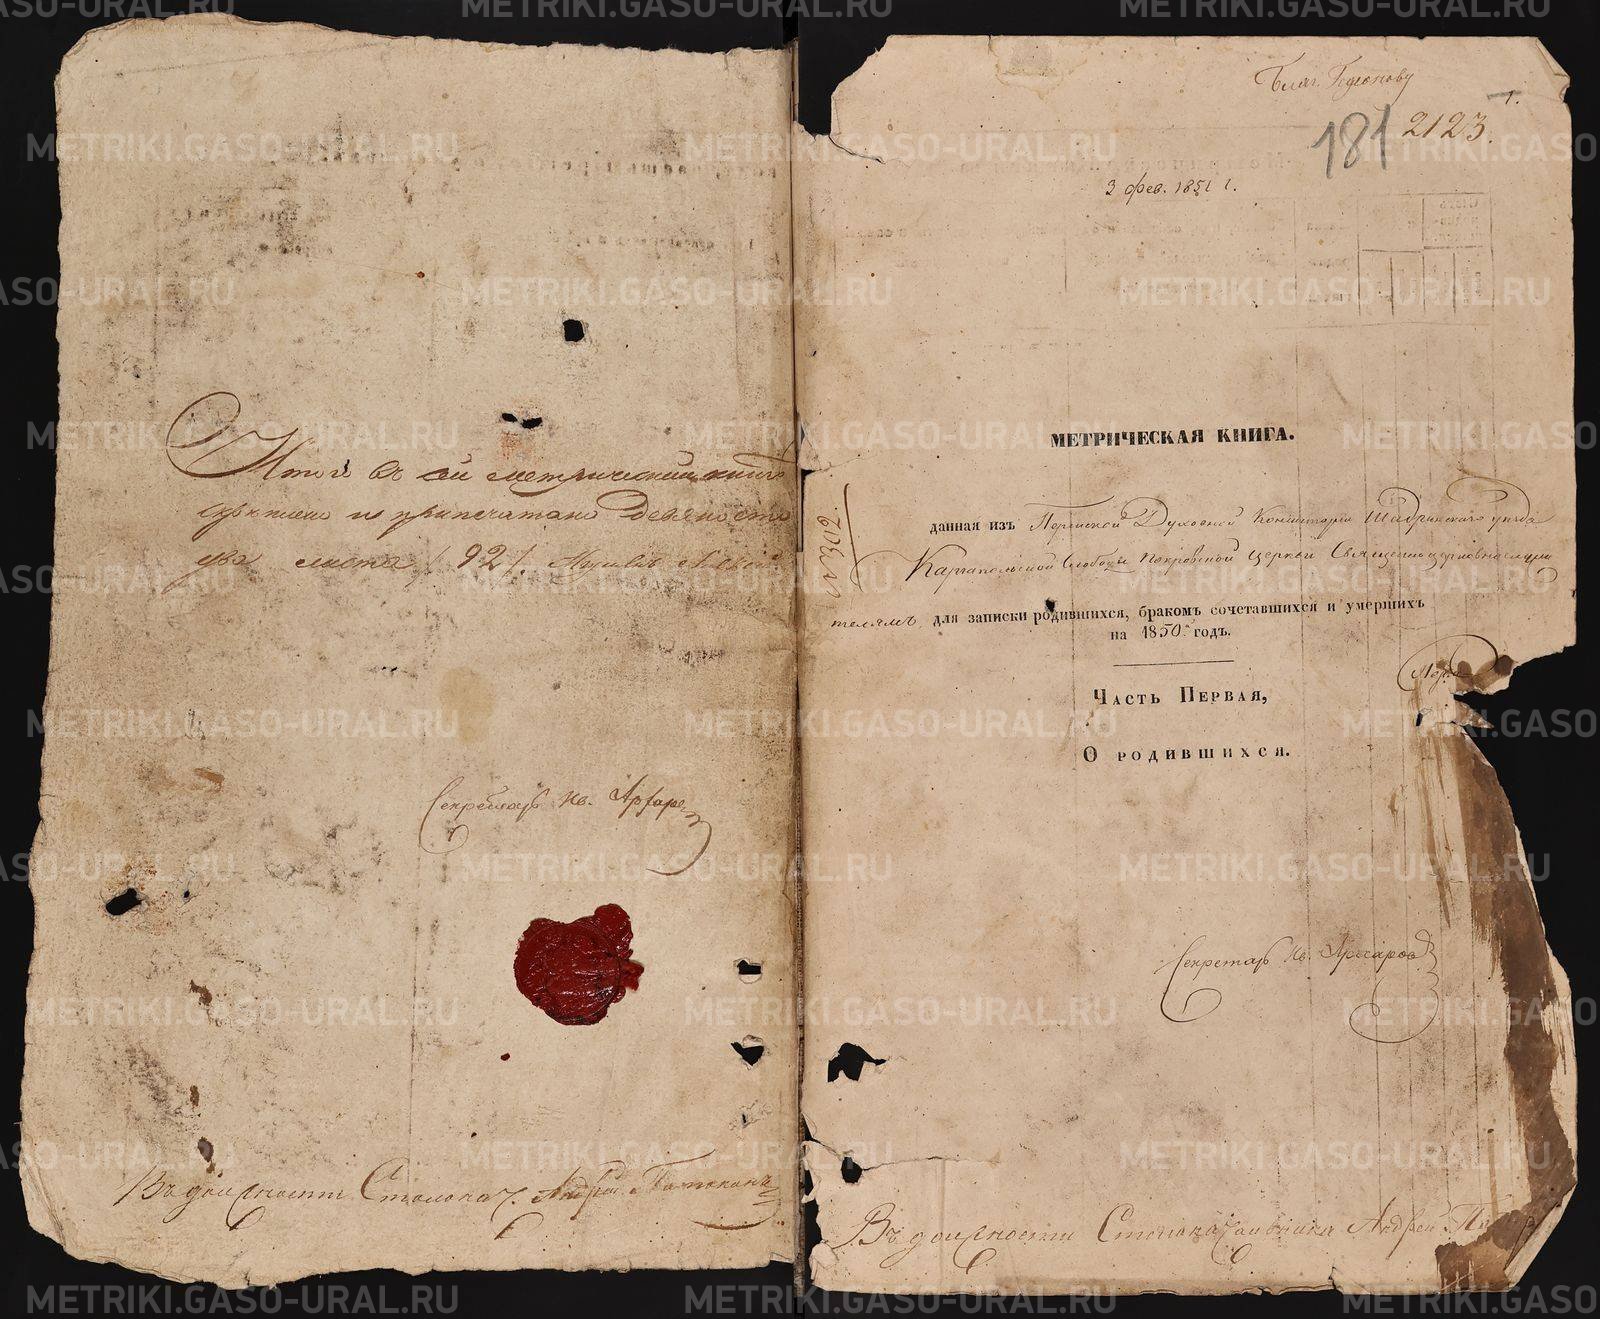 Итого въ сей метрической книгѣ
скрѣплено и припечатано девяносто
два листа /92/.
Секретарь Ив.
Въ должности Столонач. Андрей
Благ.
181
2123.
1.
3 фев. 1851 г.
МЕТРИЧЕСКАЯ КНИГА.
№ 302.
данная изъ Пермской Духовной Консисторіи Шадринскаго уѣзда
Каргапольской Слободы Покровской церкви Священноцерковнослужи
телямъ для записки родившихся, бракомъ сочетавшихся и умершихъ
на 1850 годъ.
Часть Первая,
О родившихся.
Секретарь Ив.
Въ должности Столоначальника Андрей
METRIKI.GASO-URAL.RU